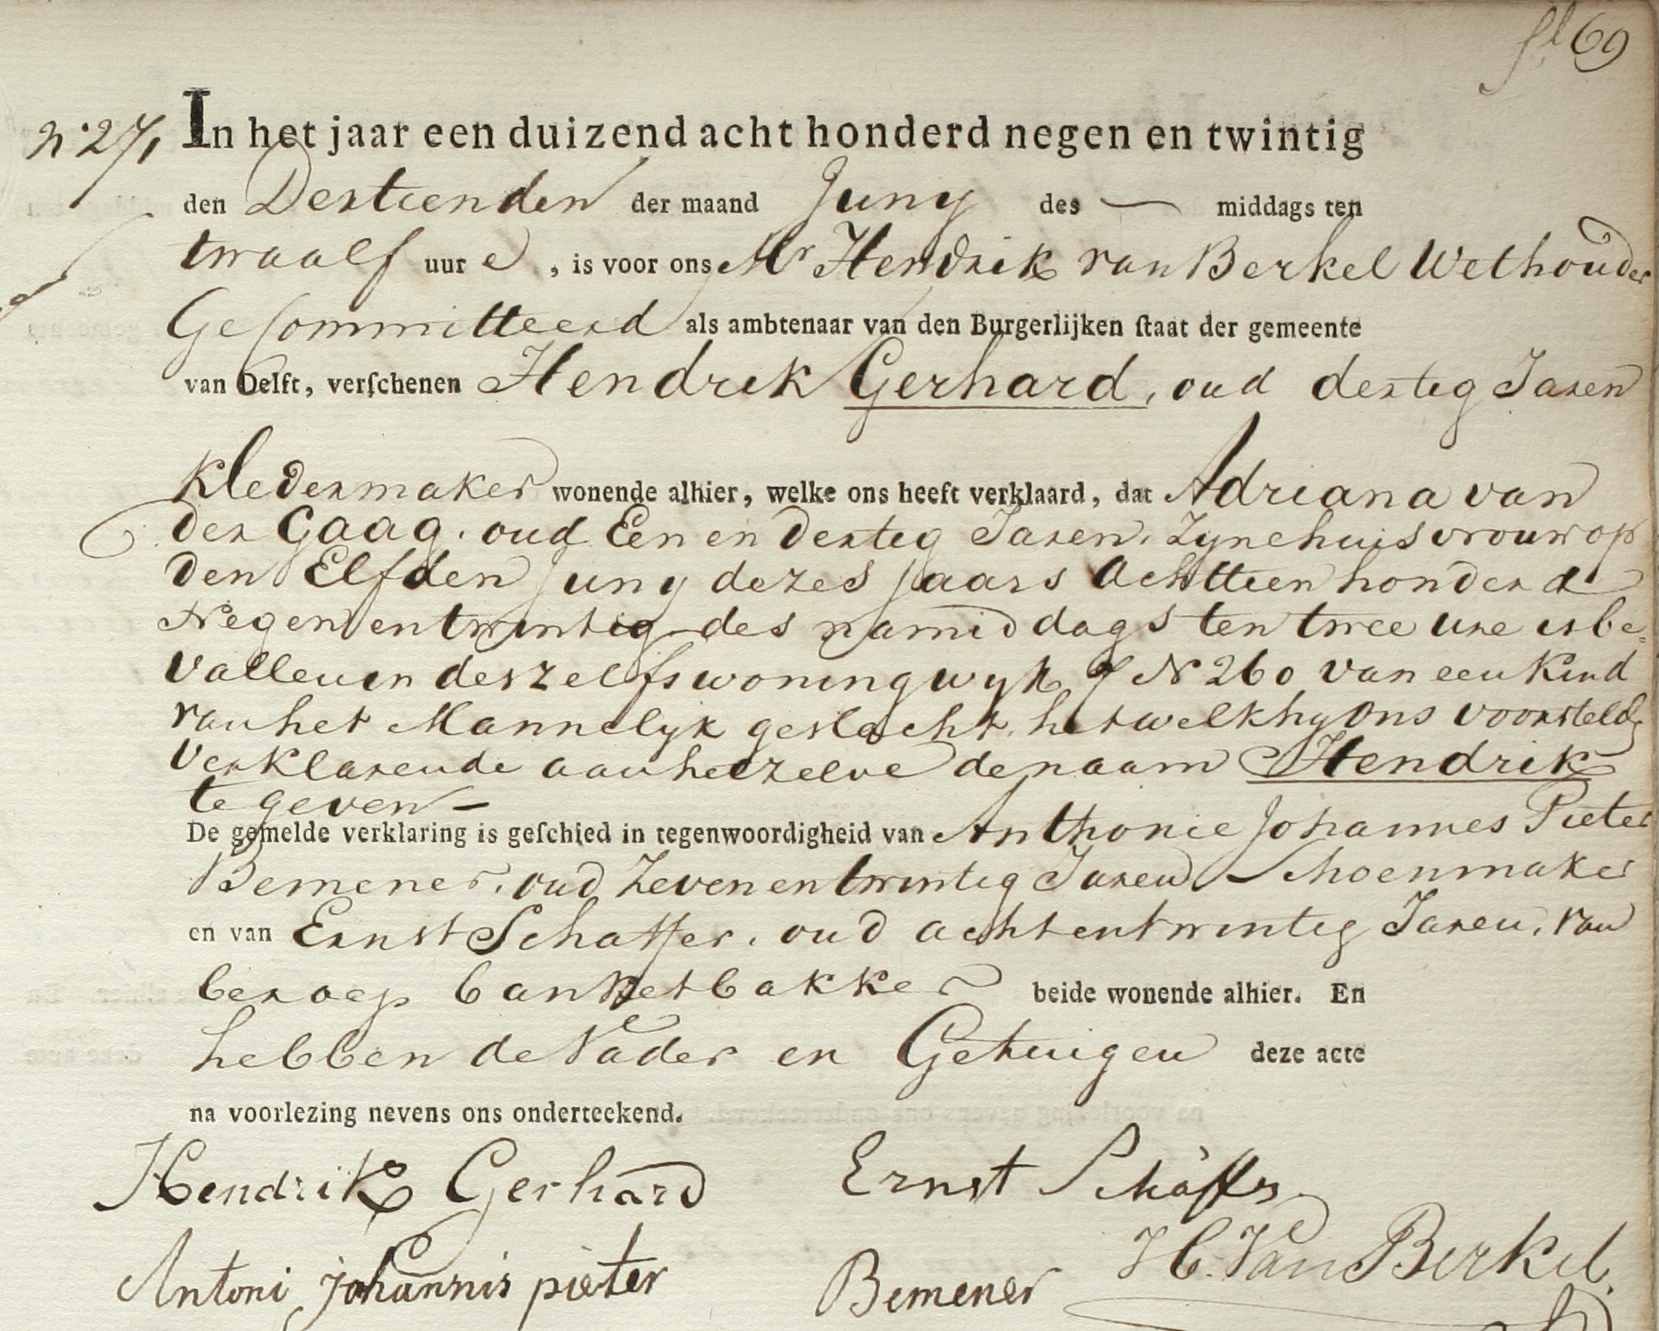 fl 69
No 271 In het jaar een duizend acht honderd negen en twintig
den Dertienden der maand Juny des — middags ten
twaalf uure, is voor ons Mr Hendrik van Berkel Wethouder
Gecommitteerd als ambtenaar van den Burgerlijken ſtaat der gemeente
van Delft, verſchenen Hendrik Gerhard, oud dertig Jaren
kledermaker wonende alhier, welke ons heeft verklaard, dat Adriana van
der Gaag, oud Een en dertig Jaren, Zynehuisvrouw op
den Elfden Juny dezes Jaars Achttien honderd
Negen en twintig des namiddags ten twee ure is be=
vallen in deszelfs woning wyk 7 N 260 van een Kind
van het Mannelyk geslacht, hetwelk hy ons voorsteld,
verklarende aan hetzelve de naam Hendrik
te geven —
De gemelde verklaring is geſchied in tegenwoordigheid van Anthonie Johannes Pieter
Bemener, oud Zeven en twintig Jaren Schoenmaker
en van Ernst Schaffer, oud acht en twintig Jaren, van
beroep banketbakker beide wonende alhier. En
hebben de Vader en Getuigen deze acte
na voorlezing nevens ons onderteekend.
Hendrik Gerhard Ernst Schäffer
Antoni johannis pieter Bemener H. Van Berkel